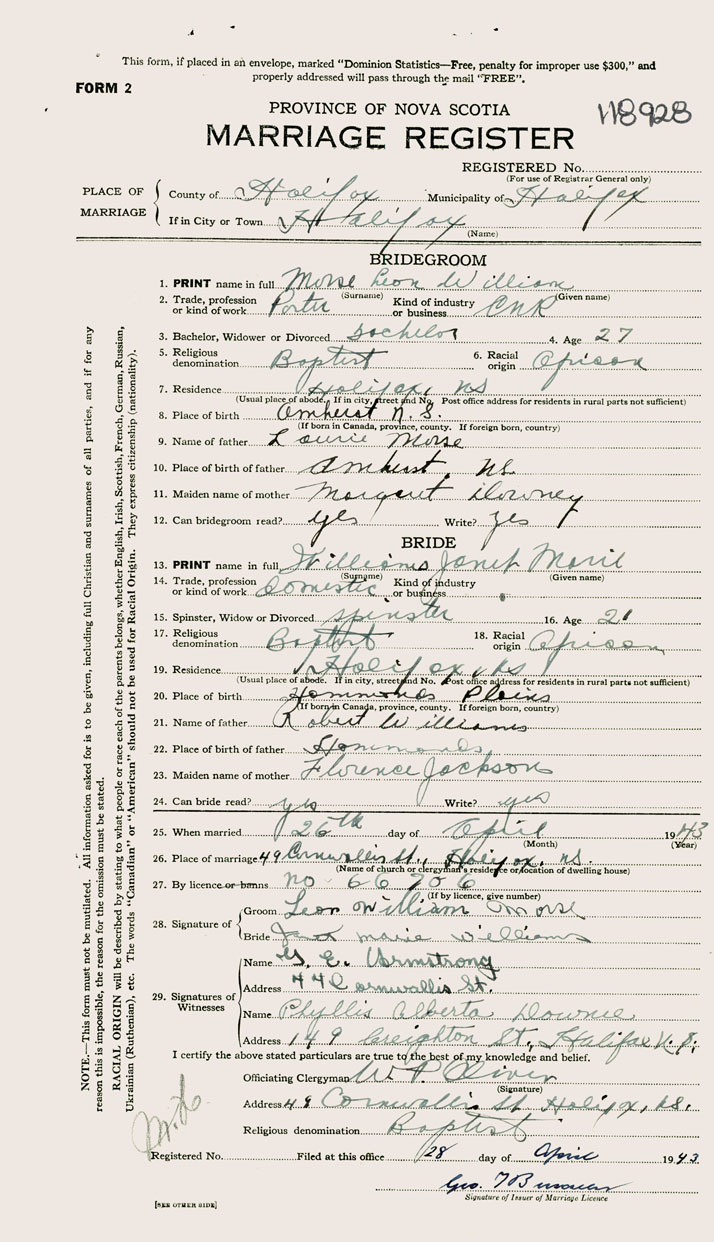 This form, if placed in an envelope, marked “Dominion Statistics—Free, penalty for improper use $300,” and
properly addressed will pass through the mail “FREE”.
FORM 2
PROVINCE OF NOVA SCOTIA
118928
MARRIAGE REGISTER
REGISTERED No.
(For use of Registrar General only)
PLACE OF MARRIAGE
County of Halifax Municipality of Halifax
If in City or Town Halifax
(Name)
BRIDEGROOM
1. PRINT name in full Morse Leon William
(Surname) (Given name)
2. Trade, profession or kind of work Porter Kind of industry or business CNR
3. Bachelor, Widower or Divorced Bachelor 4. Age 27
5. Religious denomination Baptist 6. Racial origin African
7. Residence Halifax, NS
(Usual place of abode. If in city, street and No. Post office address for residents in rural parts not sufficient)
8. Place of birth Amherst N.S.
(If born in Canada, province, county. If foreign born, country)
9. Name of father Laurie Morse
10. Place of birth of father Amherst, NS.
11. Maiden name of mother Margaret Downey
12. Can bridegroom read? yes Write? yes
BRIDE
13. PRINT name in full Williams Janet Marie
(Surname) (Given name)
14. Trade, profession or kind of work Domestic Kind of industry or business
15. Spinster, Widow or Divorced spinster 16. Age 21
17. Religious denomination Baptist 18. Racial origin African
19. Residence Halifax, NS
(Usual place of abode. If in city, street and No. Post office address for residents in rural parts not sufficient)
20. Place of birth Hammonds Plains
(If born in Canada, province, county. If foreign born, country)
21. Name of father Robert Williams
22. Place of birth of father Hammonds
23. Maiden name of mother Florence Jackson
24. Can bride read? yes Write? yes
25. When married 26th day of April 1943
(Month) (Year)
26. Place of marriage 49 Cornwallis St., Halifax, NS.
(Name of church or clergyman's residence or location of dwelling house)
27. By licence or banns no 66706
(If by licence, give number)
28. Signature of
Groom Leon William Morse
Bride Janet Marie Williams
29. Signatures of Witnesses
Name G. E. Armstrong
Address 44 Cornwallis St.
Name Phyllis Alberta Downee
Address 149 Creighton St, Halifax N.S.
I certify the above stated particulars are true to the best of my knowledge and belief.
Officiating Clergyman W P Oliver
(Signature)
Address 49 Cornwallis St Halifax, NS.
Religious denomination Baptist
Registered No. Filed at this office 28 day of April 1943
Geo.
Signature of Issuer of Marriage Licence
[SEE OTHER SIDE]
NOTE.—This form must not be mutilated. All information asked for is to be given, including full Christian and surnames of all parties, and if for any
reason this is impossible, the reason for the omission must be stated.
RACIAL ORIGIN will be described by stating to what people or race each of the parents belongs, whether English, Irish, Scottish, French, German, Russian,
Ukrainian (Ruthenian), etc. The words “Canadian” or “American” should not be used for Racial Origin. They express citizenship (nationality).